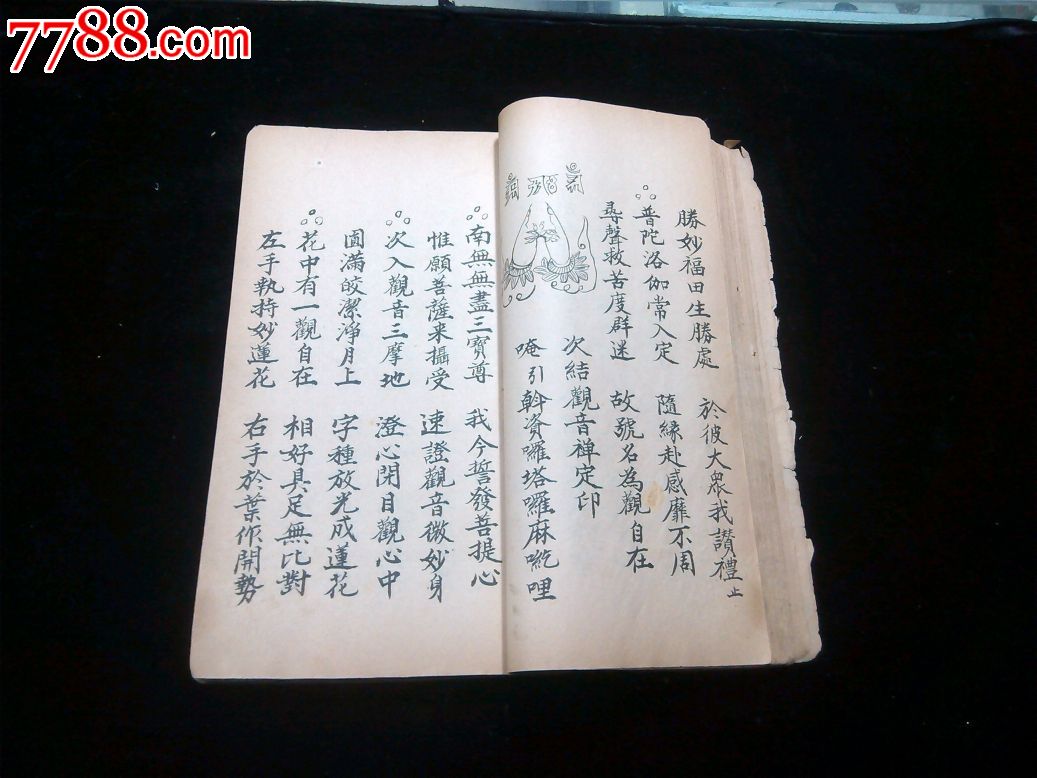 7788.com
勝妙福田生勝處 於彼大眾我讚禮止
普陀洛伽常入定 隨緣赴感靡不周
尋聲救苦度群迷 故號名為觀自在
次結觀音禪定印
唵引斡資囉塔囉麻紇哩
南無無盡三寶尊 我今誓發菩提心
惟願菩薩来攝受 速證觀音微妙身
次入觀音三摩地 澄心閉目觀心中
圓滿皎潔淨月上 字種放光成蓮花
花中有一觀自在 相好具足無比對
左手執持妙蓮花 右手於葉作開勢